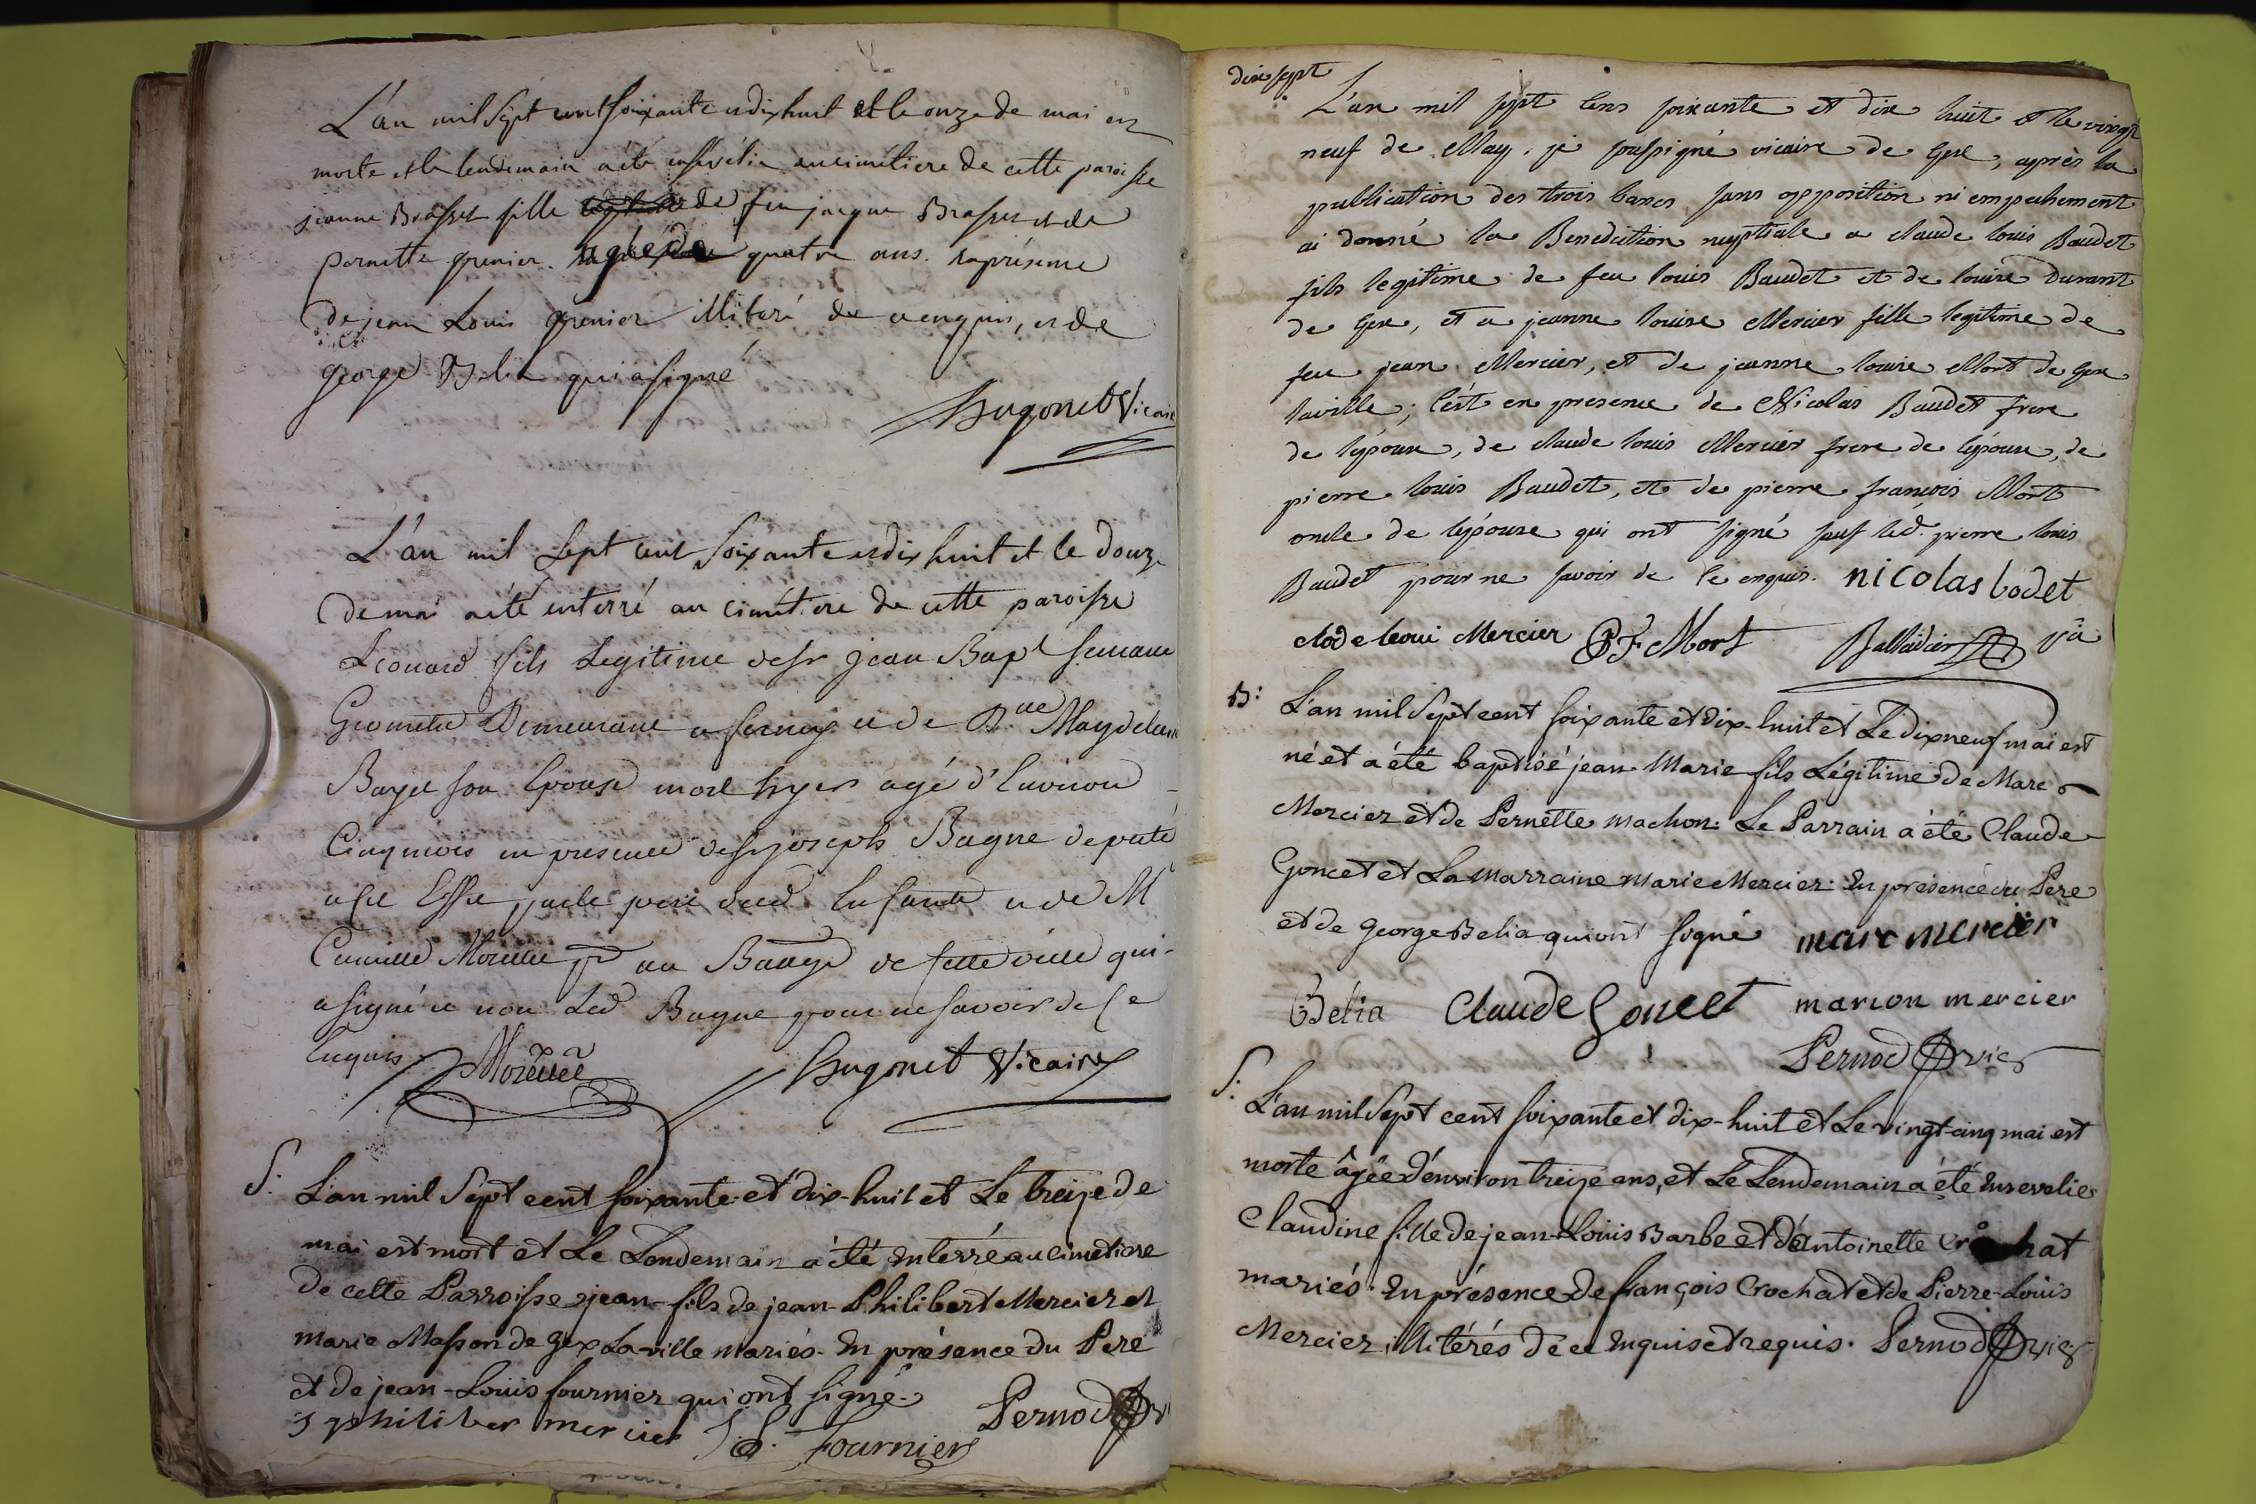 L'an mil Sept cent soixante et dix huit et le onze de mai est
morte et le lendemain a été ensevelie au cimetiere de cette paroisse
jeanne Brasset fille de feu jacque Brasset et de
pernette grenier agée de quatre ans en présence
de jean Louis grenier illiteré de ce enquis, et de
george Belia qui a signé
Hugonet Vicaire
L'an mil Sept cent soixante et dix huit et le douze
de mai a été enterré au cimétiere de cette paroisse
Leonard fils Legitime de sr jean Bapt
Geometre Demeurant a fernex et de Dlle Magdelene
son Epouse mort hyer agé d'Environ
Cinq mois en presence de sr joseph Bagne deputé
a cet Effet par le pere dud. Enfant et de Mr
Camille au de cette ville qui
a signé et non Led Bagne pour ne savoir de ce
Enquis
Hugonet Vicaire
S. L'an mil Sept cent soixante et dix-huit et Le treize de
mai est mort et Le Lendemain a été Enterré au cimetiere
de cette Parroisse jean fils de jean-Philibert Mercier et
marie Masson de gex La-ville mariés. En présence du Pere
et de jean-Louis fournier qui ont signé
J philiber mercier J. L. Fournier Pernod v
dix sept
L'an mil sept cens soixante et dix huit et le vingt
neuf de May, je soussigné vicaire de Gex, après la
publication des trois bancs sans opposition ni empechement
ai donné la Benediction nuptiale a claude louis Baudet
fils legitime de feu louis Baudet et de louise Durant
de Gex, et a jeanne louise Mercier fille legitime de
feu jean Mercier, et de jeanne louise Mort de Gex
laville; c'est en presence de Nicolas Baudet frere
de l'époux, de claude louis Mercier frere de lépouse, de
pierre louis Baudet, et de pierre françois Mort
oncle de lépouse qui ont signé sauf led. pierre louis
Baudet pour ne savoir de ce enquis. nicolas bodet
clode leoui Mercier P F Mort Balleidier v^re
B: L'an mil Sept cent soixante et dix-huit et Le dix neuf mai est
né et a été baptisé jean-Marie fils Légitime de Marc
Mercier et de Pernette machon. Le Parrain a été Claude
Goncet et La marraine Marie Mercier. En présence du Pere
et de George Belia qui ont signé marc mercier
Belia Claude Goncet marion mercier
Pernod vic
S. L'an mil Sept cent soixante et dix-huit et Le vingt-cinq mai est
morte âgée d'environ treize ans, et Le Lendemain a été Ensevelie
Claudine fille de jean-Louis Barbe et d'Antoinette Crochat
mariés. En présence de françois Crochat et de Pierre-Louis
Mercier, illitérés de ce Enquis et requis. Pernod vic